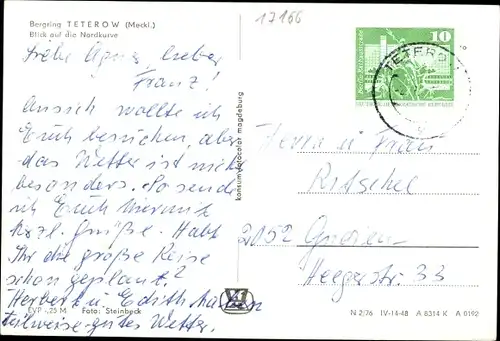 Bergring TETEROW (Meckl.)
Blick auf die Nordkurve
17166
Frühe lieber
Franz!
wollte ich
Euch besuchen, aber
das Wetter ist nicht
besonders. So sende
ich Euch hiermit
hzl. Grüße. Habt
Ihr die große Reise
schon geplant?
Herbert u. Edith hatten
teilweise gutes Wetter.
EVP -,25 M Foto: Steinbeck
konsum fotocolor magdeburg
10
TETEROW
Herrn u. Frau
Ritschel
2052 Gnoien
Heegerstr. 33
N 2/76 IV-14-48 A 8314 K A 0192